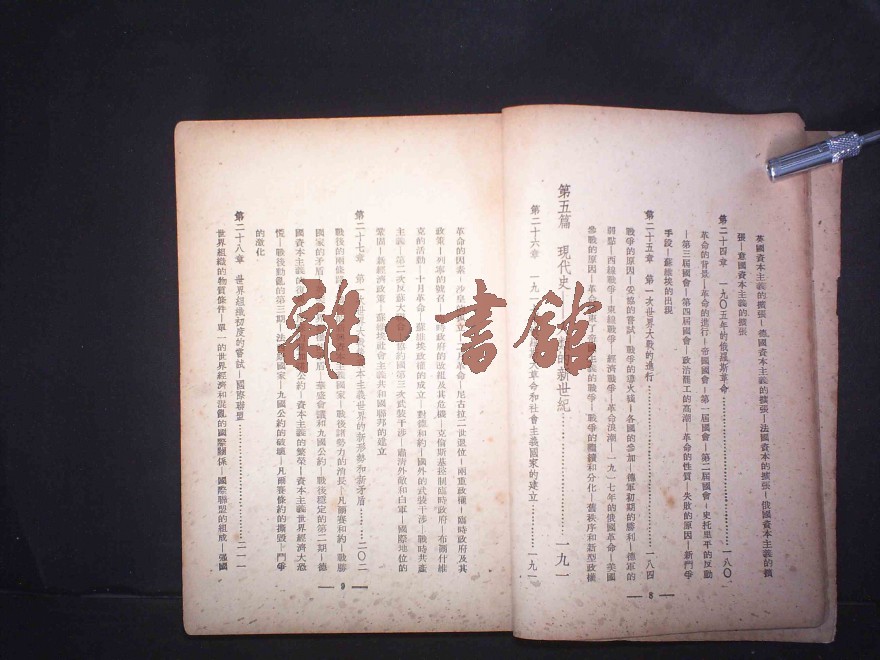 英國資本主義的擴張—德國資本主義的擴張—法國資本的擴張—俄國資本主義的擴
張—意國資本主義的擴張
第二十四章 一九〇五年的俄羅斯革命…………一八〇
革命的背景—革命的進行—帝國國會—第一屆國會—第二屆國會—史托里平的反動
—第三屆國會—第四屆國會—政治罷工的高潮—革命的性質—失敗的原因—新鬥爭
手段—蘇維埃的出現
第二十五章 第一次世界大戰的進行…………一八四
戰爭的原因—妥協的嘗試—戰爭的導火綫—各國的參加—德軍初期的勝利—德軍的
弱點—西線戰爭—東線戰爭—經濟戰爭—革命浪潮—一九一七年的俄國革命—美國
參戰的原因—革命 了帝 主義的戰爭—戰爭的繼續和分化—舊秩序和新型政權
第五篇 現代史— 的新世紀…………一九一
第二十六章 一九一 大革命和社會主義國家的建立…………一九一
— 8 —
革命的因素—沙皇 立— 月革命—尼古拉二世退位—兩重政權—臨時政府及其
政策—列寧的號召— 時政府的改組及其危機—克倫斯基控制臨時政府—布爾什維
克的活動—十月革命—蘇維埃政權的成立—對德和約—國外的武裝干涉—戰時共產
主義—第二次反蘇大 會— 約國第三次武裝干涉—肅清外敵和白軍—國際地位的
鞏固—新經濟政策—蘇維埃社會主義共和國聯邦的建立
第二十七章 第一次世界大戰 本主義世界的新形勢和新矛盾……二〇二
戰後的兩條 資本主義國家—戰後諸勢力的消長—凡爾賽和約—戰勝
國家的矛盾 盾—華盛會議和九國公約—戰後穩定的第二期—德
國資本主義的復 公約—資本主義的繁榮—資本主義世界經濟大恐
慌—戰後動亂的第三期—法 國家—九國公約的破壞—凡爾賽條約的撕毀—鬥爭
的激化
第二十八章 世界組織初度的嘗試—國際聯盟…………二一一
世界組織的物質條件—單一的世界經濟和混亂的國際關係—國際聯盟的組成—強國
— 9 —
雜·書館